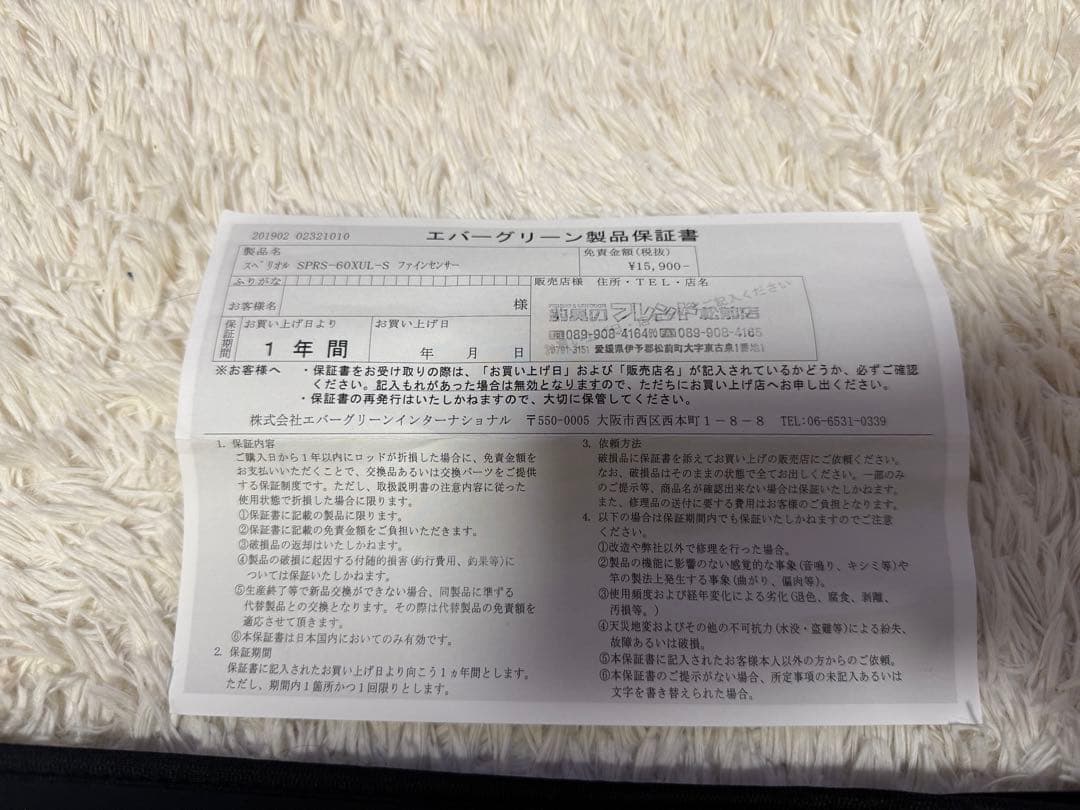 201902 02321010
エバーグリーン製品保証書
製品名
スペリオル SPRS-60XUL-S ファインセンサー
免責金額(税抜)
¥15,900-
ふりがな
お客様名
様
保証期間
お買い上げ日より
1年間
お買い上げ日
年 月 日
販売店様 住所・TEL・店名
ご記入ください
フレンド松前店
089-908-4164 FAX 089-908-4165
〒791-3151 愛媛県伊予郡松前町大字東古泉1番地1
※お客様へ ・保証書をお受け取りの際は、「お買い上げ日」および「販売店名」が記入されているかどうか、必ずご確認
ください。記入もれがあった場合は無効となりますので、ただちにお買い上げ店へお申し出ください。
・保証書の再発行はいたしかねますので、大切に保管してください。
株式会社エバーグリーンインターナショナル 〒550-0005 大阪市西区西本町1-8-8 TEL:06-6531-0339
1. 保証内容
ご購入日から1年以内にロッドが折損した場合に、免責金額を
お支払いいただくことで、交換品あるいは交換パーツをご提供
する保証制度です。ただし、取扱説明書の注意内容に従った
使用状態で折損した場合に限ります。
①保証書に記載の製品に限ります。
②保証書に記載の免責金額をご負担いただきます。
③破損品の返却はいたしかねます。
④製品の破損に起因する付随的損害(釣行費用、釣果等)に
ついては保証いたしかねます。
⑤生産終了等で新品交換ができない場合、同製品に準ずる
代替製品との交換となります。その際は代替製品の免責額を
適応させて頂きます。
⑥本保証書は日本国内においてのみ有効です。
2. 保証期間
保証書に記入されたお買い上げ日より向こう1ヵ年間とします。
ただし、期間内1箇所かつ1回限りとします。
3. 依頼方法
破損品に保証書を添えてお買い上げの販売店にご依頼ください。
なお、破損品はそのままの状態で全てお出しください。一部のみ
のご提示等、商品名が確認出来ない場合は保証いたしかねます。
また、修理品の送付に要する費用はお客様のご負担となります。
4. 以下の場合は保証期間内でも保証いたしかねますのでご注意
ください。
①改造や弊社以外で修理を行った場合。
②製品の機能に影響のない感覚的な事象(音鳴り、キシミ等)や
竿の製法上発生する事象(曲がり、偏肉等)。
③使用頻度および経年変化による劣化(退色、腐食、剥離、
汚損等。)
④天災地変およびその他の不可抗力(水没・盗難等)による紛失、
故障あるいは破損。
⑤本保証書に記入されたお客様本人以外の方からのご依頼。
⑥本保証書のご提示がない場合、所定事項の未記入あるいは
文字を書き替えられた場合。